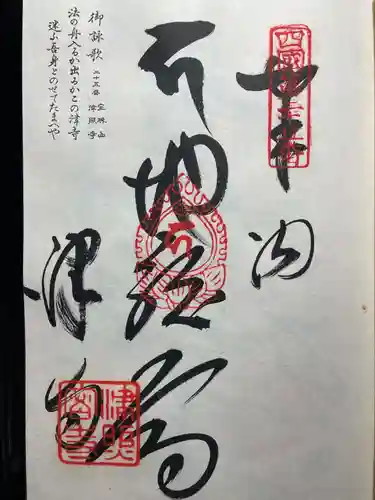 奉納
四國第廿五番
地蔵
津寺
津照
御詠歌 二十五番 宝珠山 津照寺
法の舟入るか出るかこの津寺
迷ふ吾身をのせてたまへや